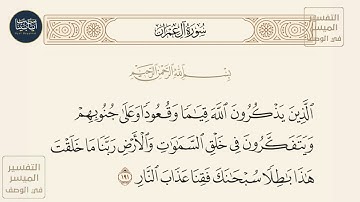 سُورَةُ آلِ عِمْرَانَ
التفسير
الميسر
في الوصف
بِسْمِ اللَّهِ الرَّحْمَٰنِ الرَّحِيمِ
الَّذِينَ يَذْكُرُونَ اللَّهَ قِيَامًا وَقُعُودًا وَعَلَىٰ جُنُوبِهِمْ
وَيَتَفَكَّرُونَ فِي خَلْقِ السَّمَاوَاتِ وَالْأَرْضِ رَبَّنَا مَا خَلَقْتَ
هَٰذَا بَاطِلًا سُبْحَانَكَ فَقِنَا عَذَابَ النَّارِ ١٩١
التفسير
الميسر
في الوصف